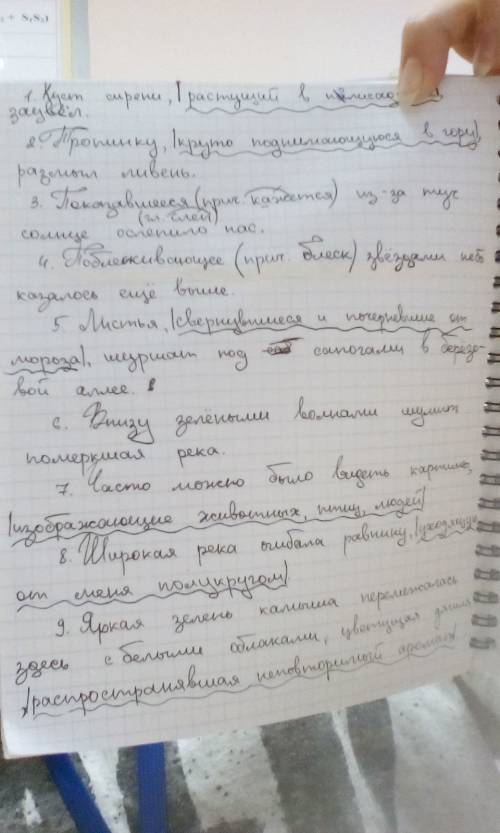 1. Куст сирени, |растущий в
зацвёл.
2. Тропинку, |круто поднимающуюся в гору|
размыл ливень.
3. Показавшееся (прич. кажется) из-за туч
(гл. слеп)
солнце ослепило нас.
4. Поблескивающее (прич. блеск) звёздами небо
казалось ещё выше.
5. Листья, |свернувшиеся и почерневшие от
мороза|, шуршат под сапогами в берёзо-
вой аллее.
6. Внизу зелёными волнами шумит
померкшая река.
7. Часто можно было видеть картины,
|изображающие животных, птиц, людей|
8. Широкая река огибала равнину, |уходящую
от меня полукругом|.
9. Яркая зелень камыша перемежалась
здесь с белыми облаками, цветущая
|распространявшая неповторимый аромат|